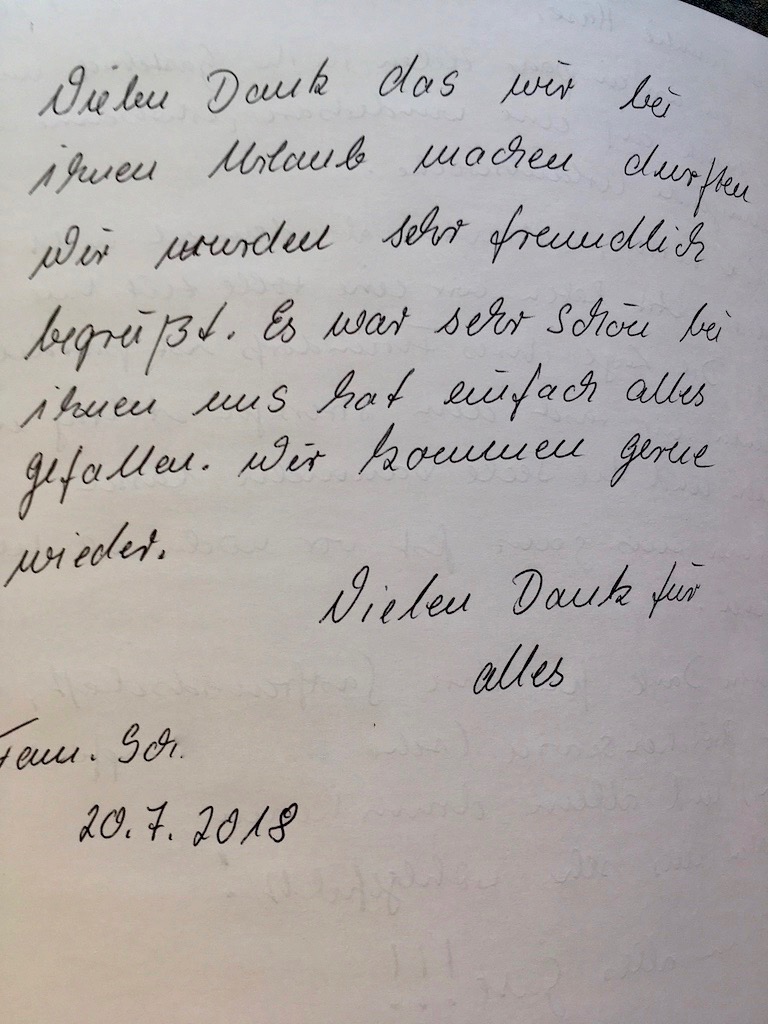 Vielen Dank das wir bei
ihnen Urlaub machen durften
Wir wurden sehr freundlich
begrüßt. Es war sehr schön bei
ihnen uns hat einfach alles
gefallen. Wir kommen gerne
wieder.
Vielen Dank für
alles
Fam. Sch.
20.7.2018